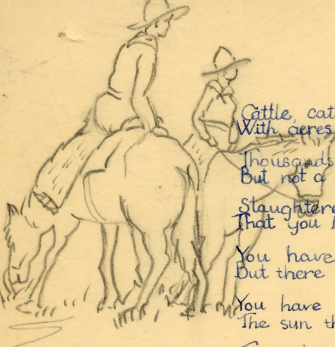 Cattle, cat
With acres
Thousands
But not a
Slaughtere
That you
You have
But there
You have
The sun th